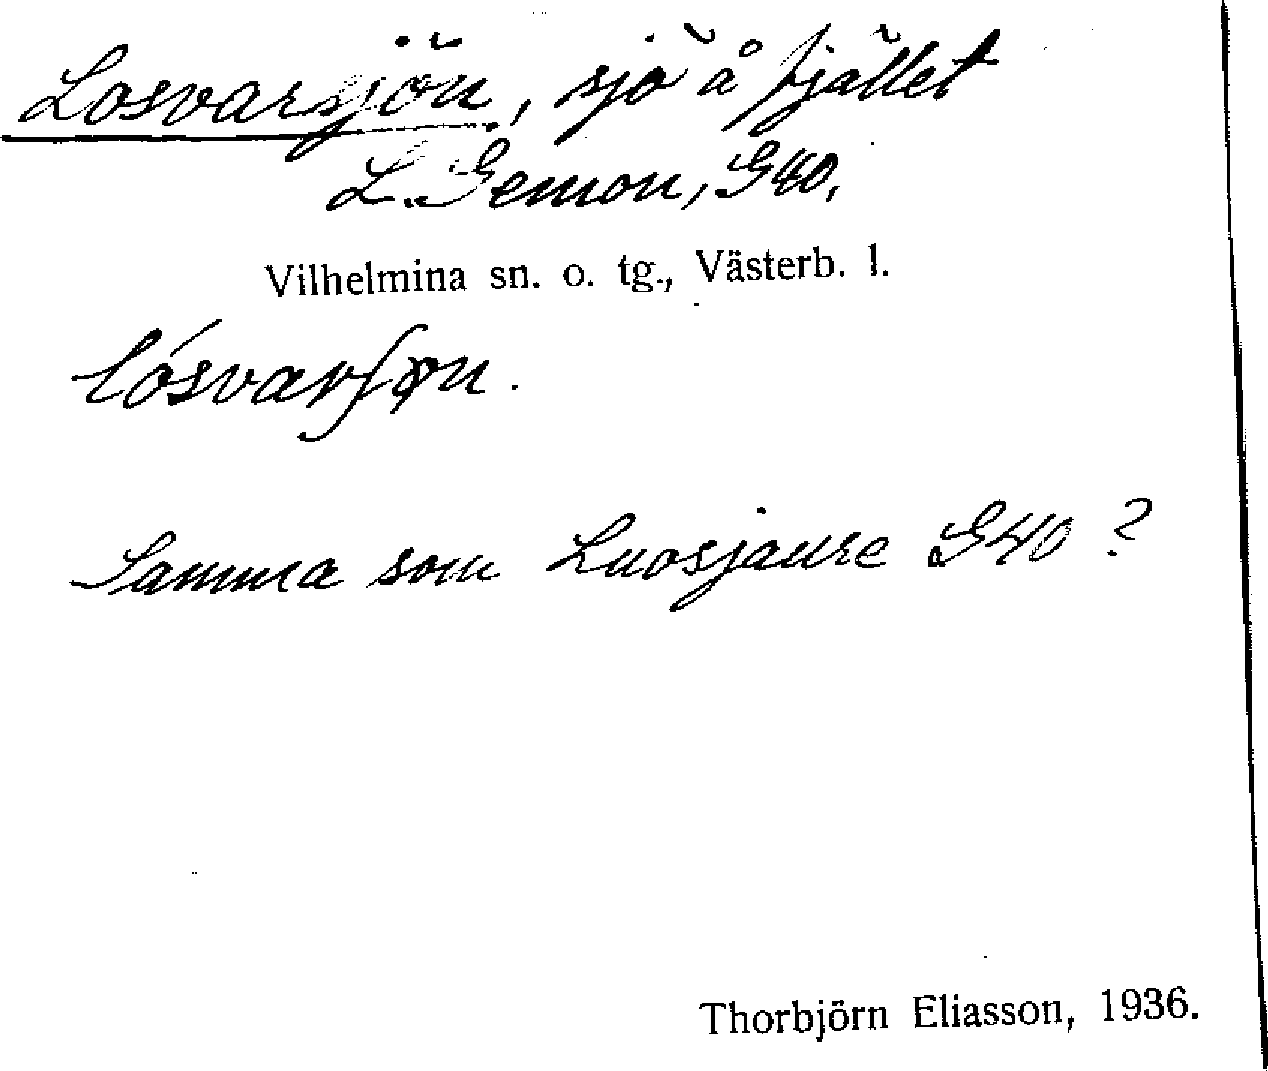 Losvarsjön, sjö å fjället
L. Gemon, G40,
Vilhelmina sn. o. tg., Västerb. l.
lósvarʃøn.
Samma som Luosjaure G40?
Thorbjörn Eliasson, 1936.